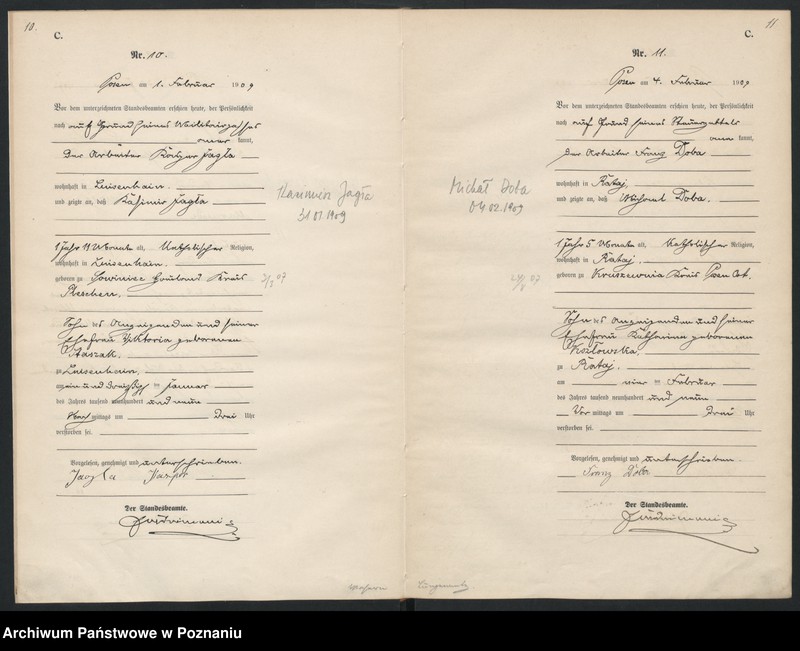 10.
C.
Nr. 10.
Posen am 1. Februar 1909
Vor dem unterzeichneten Standesbeamten erschien heute, der Persönlichkeit
nach auf Grund seines Militairpasses
kannt,
der Arbeiter Kaspar Jagla
wohnhaft in Luisenhain.
und zeigte an, daß Kasimir Jagla
1 Jahr 11 Monate alt, Katholischer Religion,
wohnhaft in Luisenhain.
geboren zu Kreis
Pleschen.
Sohn des Anzeigenden und seiner
Ehefrau Viktoria geborenen
Staszak.
zu Luisenhain.
am ein und dreißig ten Januar
des Jahres tausend neunhundert und neun
Nach mittags um Drei Uhr
verstorben sei.
Vorgelesen, genehmigt und unterschrieben.
Jagla Kaspar
Der Standesbeamte.
Kazimierz Jagła
31 01 1909
11.
C.
Nr. 11.
Posen am 4. Februar 1909
Vor dem unterzeichneten Standesbeamten erschien heute, der Persönlichkeit
nach auf Grund seines Steuerzettels
kannt,
der Arbeiter Franz Doba
wohnhaft in Rataj.
und zeigte an, daß Michael Doba.
1 Jahr 5 Monate alt, Katholischer Religion,
wohnhaft in Rataj.
geboren zu Kruszewnia Kreis Posen Ost.
Sohn des Anzeigenden und seiner
Ehefrau Katharina geborenen
Kozlowska.
zu Rataj.
am vier ten Februar
des Jahres tausend neunhundert und neun.
Vor mittags um Drei Uhr
verstorben sei.
Vorgelesen, genehmigt und unterschrieben.
Franz Doba
Der Standesbeamte.
Michał Doba
04 02 1909
Archiwum Państwowe w Poznaniu